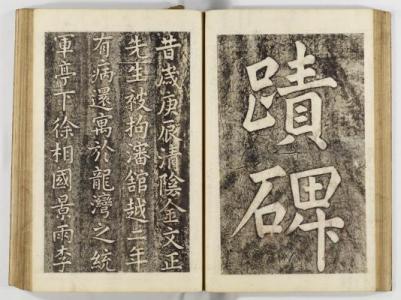 蹟碑
昔歲庚辰清陰金文正
先生被拘瀋舘越二年
有病還寓於龍灣之統
軍亭下徐相國景雨李